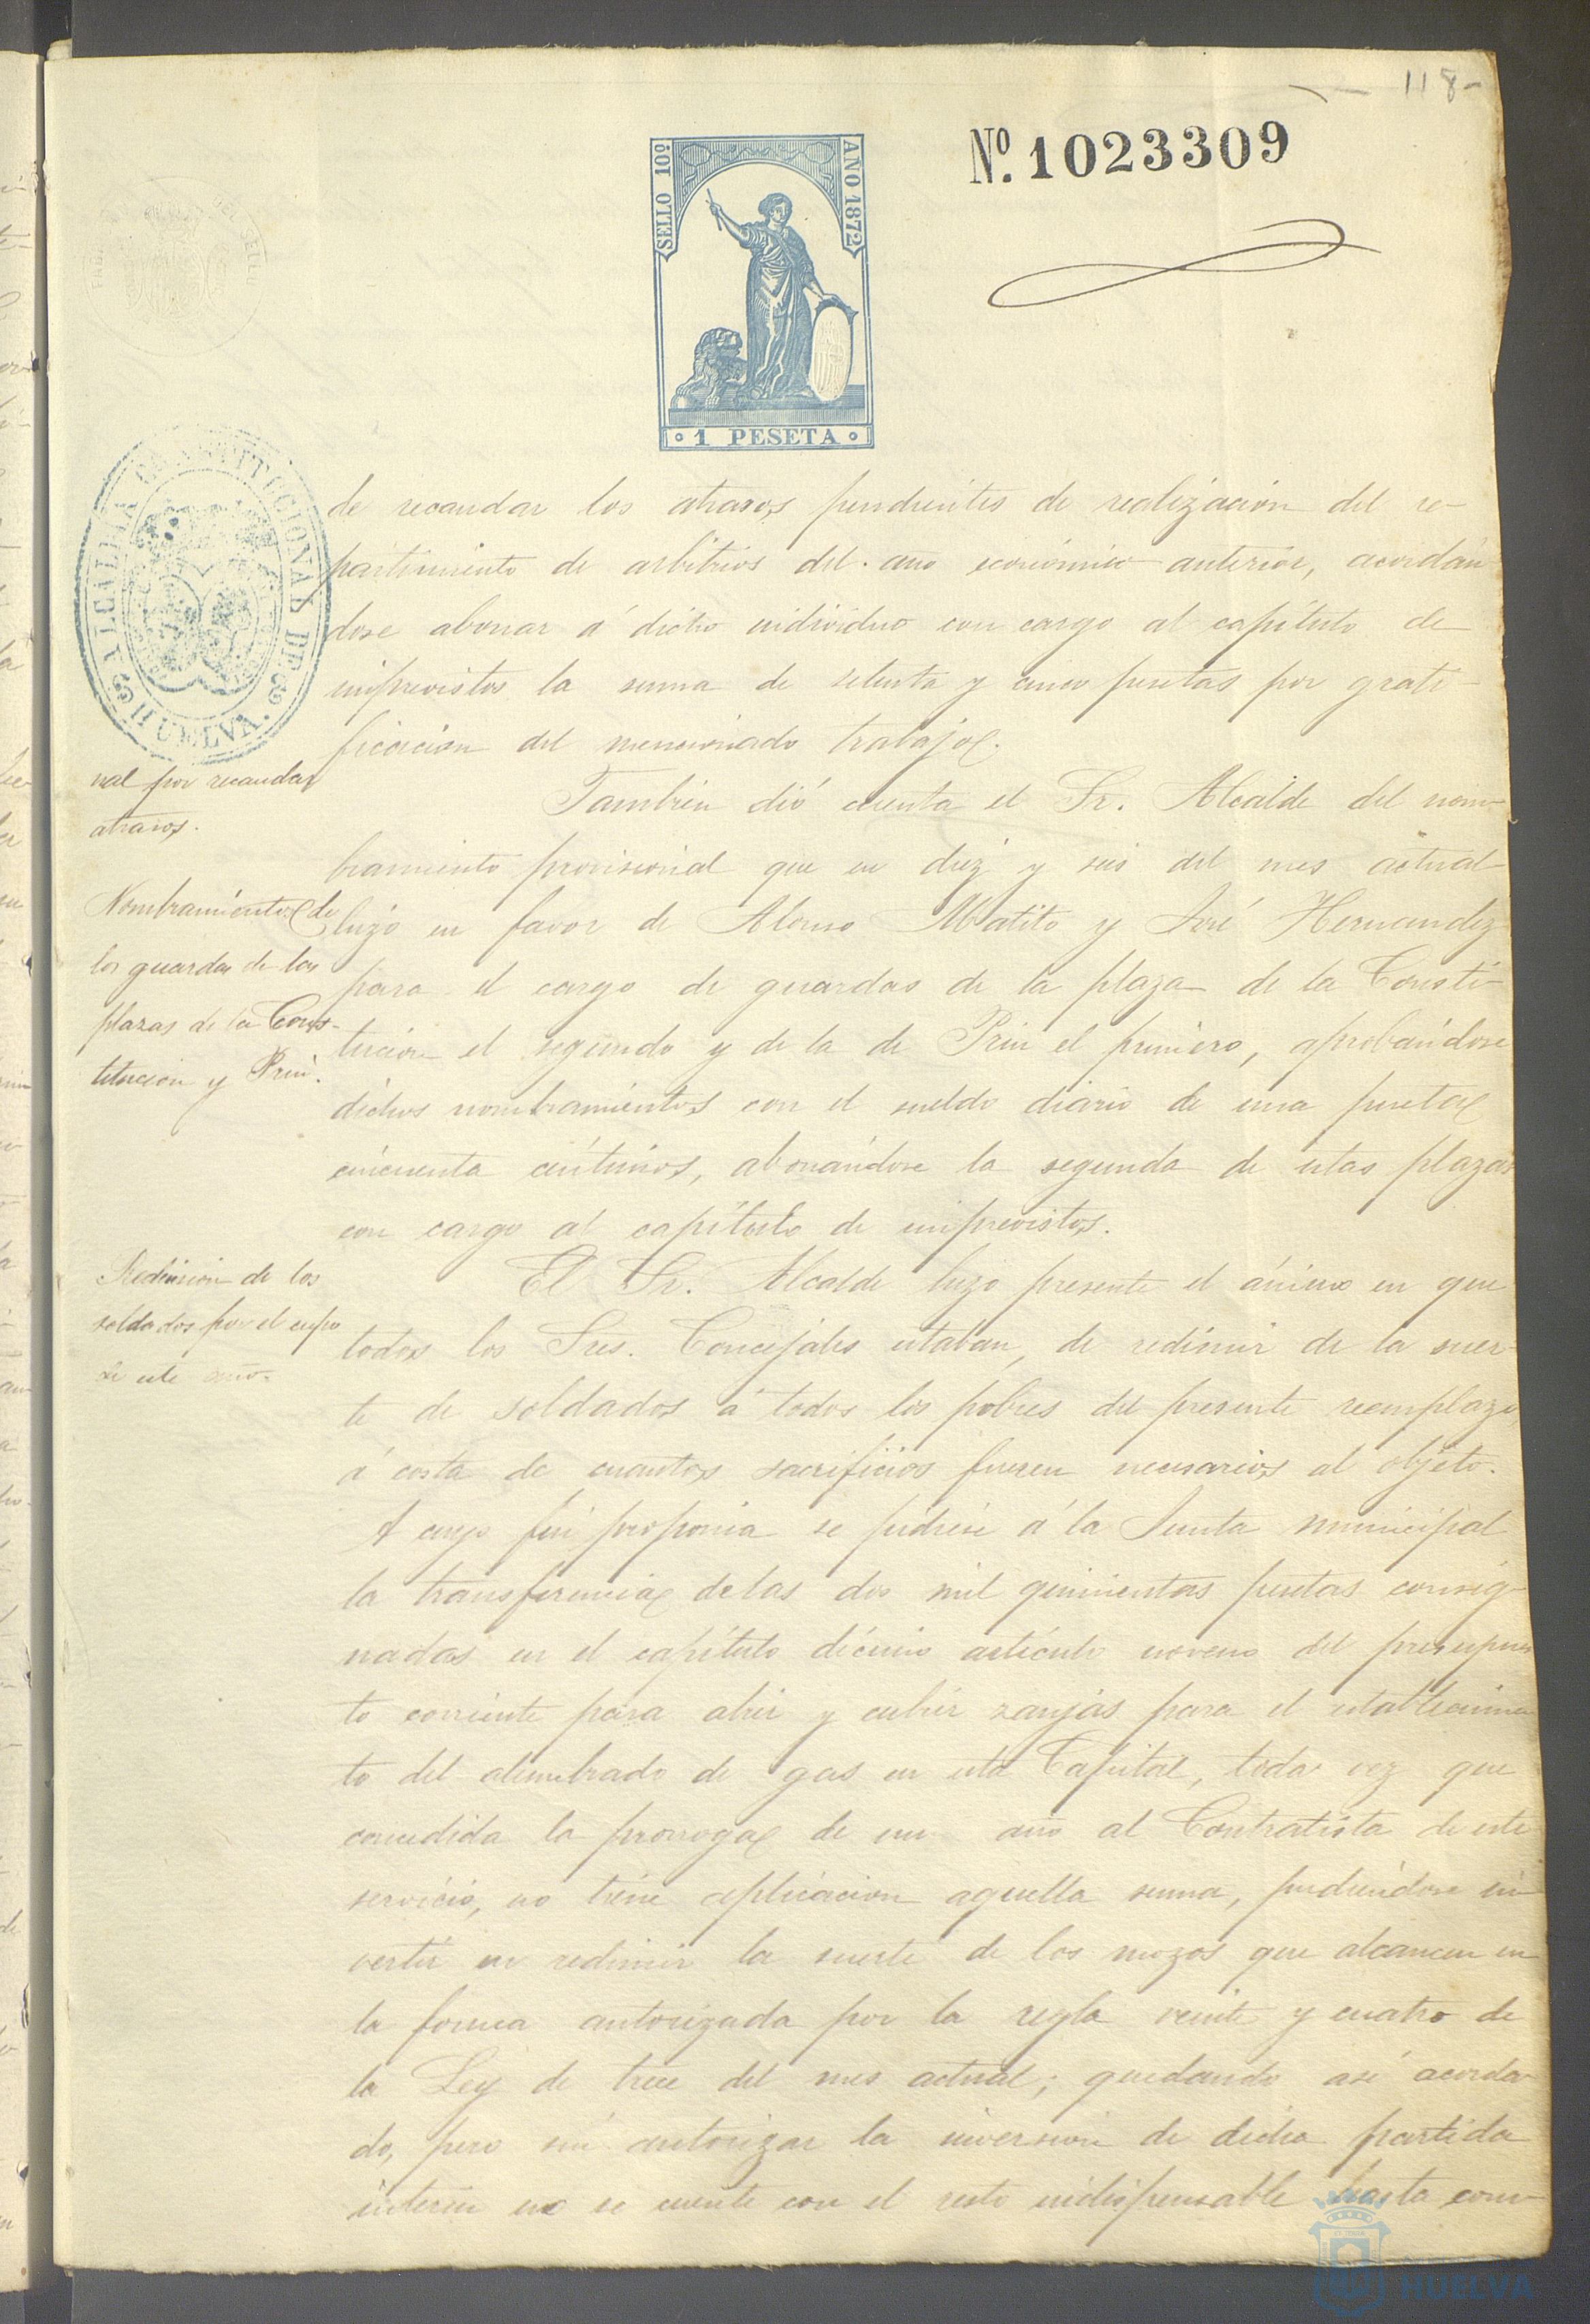 118-
Nº. 1023309
SELLO 10º
AÑO 1872
1 PESETA
ALCALDIA CONSTITUCIONAL DE
HUELVA.
de recaudar los atrasos pendientes de realizacion del re-
partimiento de arbitrios del año económico anterior, acordán
dose abonar á dicho individuo con cargo al capítulo de
imprevistos la suma de setenta y cinco pesetas por grati-
ficacion del mencionado trabajo.
nal por recaudar
atrasos.
Tambien dió cuenta el Sr. Alcalde del nom-
bramiento provisional que en diez y seis del mes actual
hizo en favor de Alonso Matito y José Hernandez
para el cargo de guardas de la plaza de la Consti-
tucion el segundo y de la de Prin el primero, aprobándose
dichos nombramientos con el sueldo diario de una peseta
cincuenta céntimos, abonándose la segunda de estas plazas
con cargo al capítulo de imprevistos.
Nombramiento de
los guardas de las
plazas de la Cons-
titucion y Prin.
El Sr. Alcalde hizo presente el ánimo en que
todos los Sres. Concejales estaban, de redimir de la suer-
te de soldados á todos los pobres del presente reemplazo
á costa de cuantos sacrificios fuesen necesarios al objeto.
A cuyo fin proponia se pidiese á la Junta municipal
la transferencia de las dos mil quinientas pesetas consig-
nadas en el capítulo décimo artículo noveno del presupues
to corriente para abrir y cubrir zanjas para el establecimien
to del alumbrado de gas en esta Capital, toda vez que
concedida la prorroga de un año al Contratista de este
servicio, no tiene aplicacion aquella suma, pudiéndose in
vertir en redimir la suerte de los mozos que alcancen en
la forma autorizada por la regla veinte y cuatro de
la Ley de trece del mes actual; quedando asi acorda-
do, pero sin autorizar la inversion de dicha partida
interin no se cuente con el resto indispensable hasta com-
Redencion de los
soldados por el cupo
de este año.
HUELVA